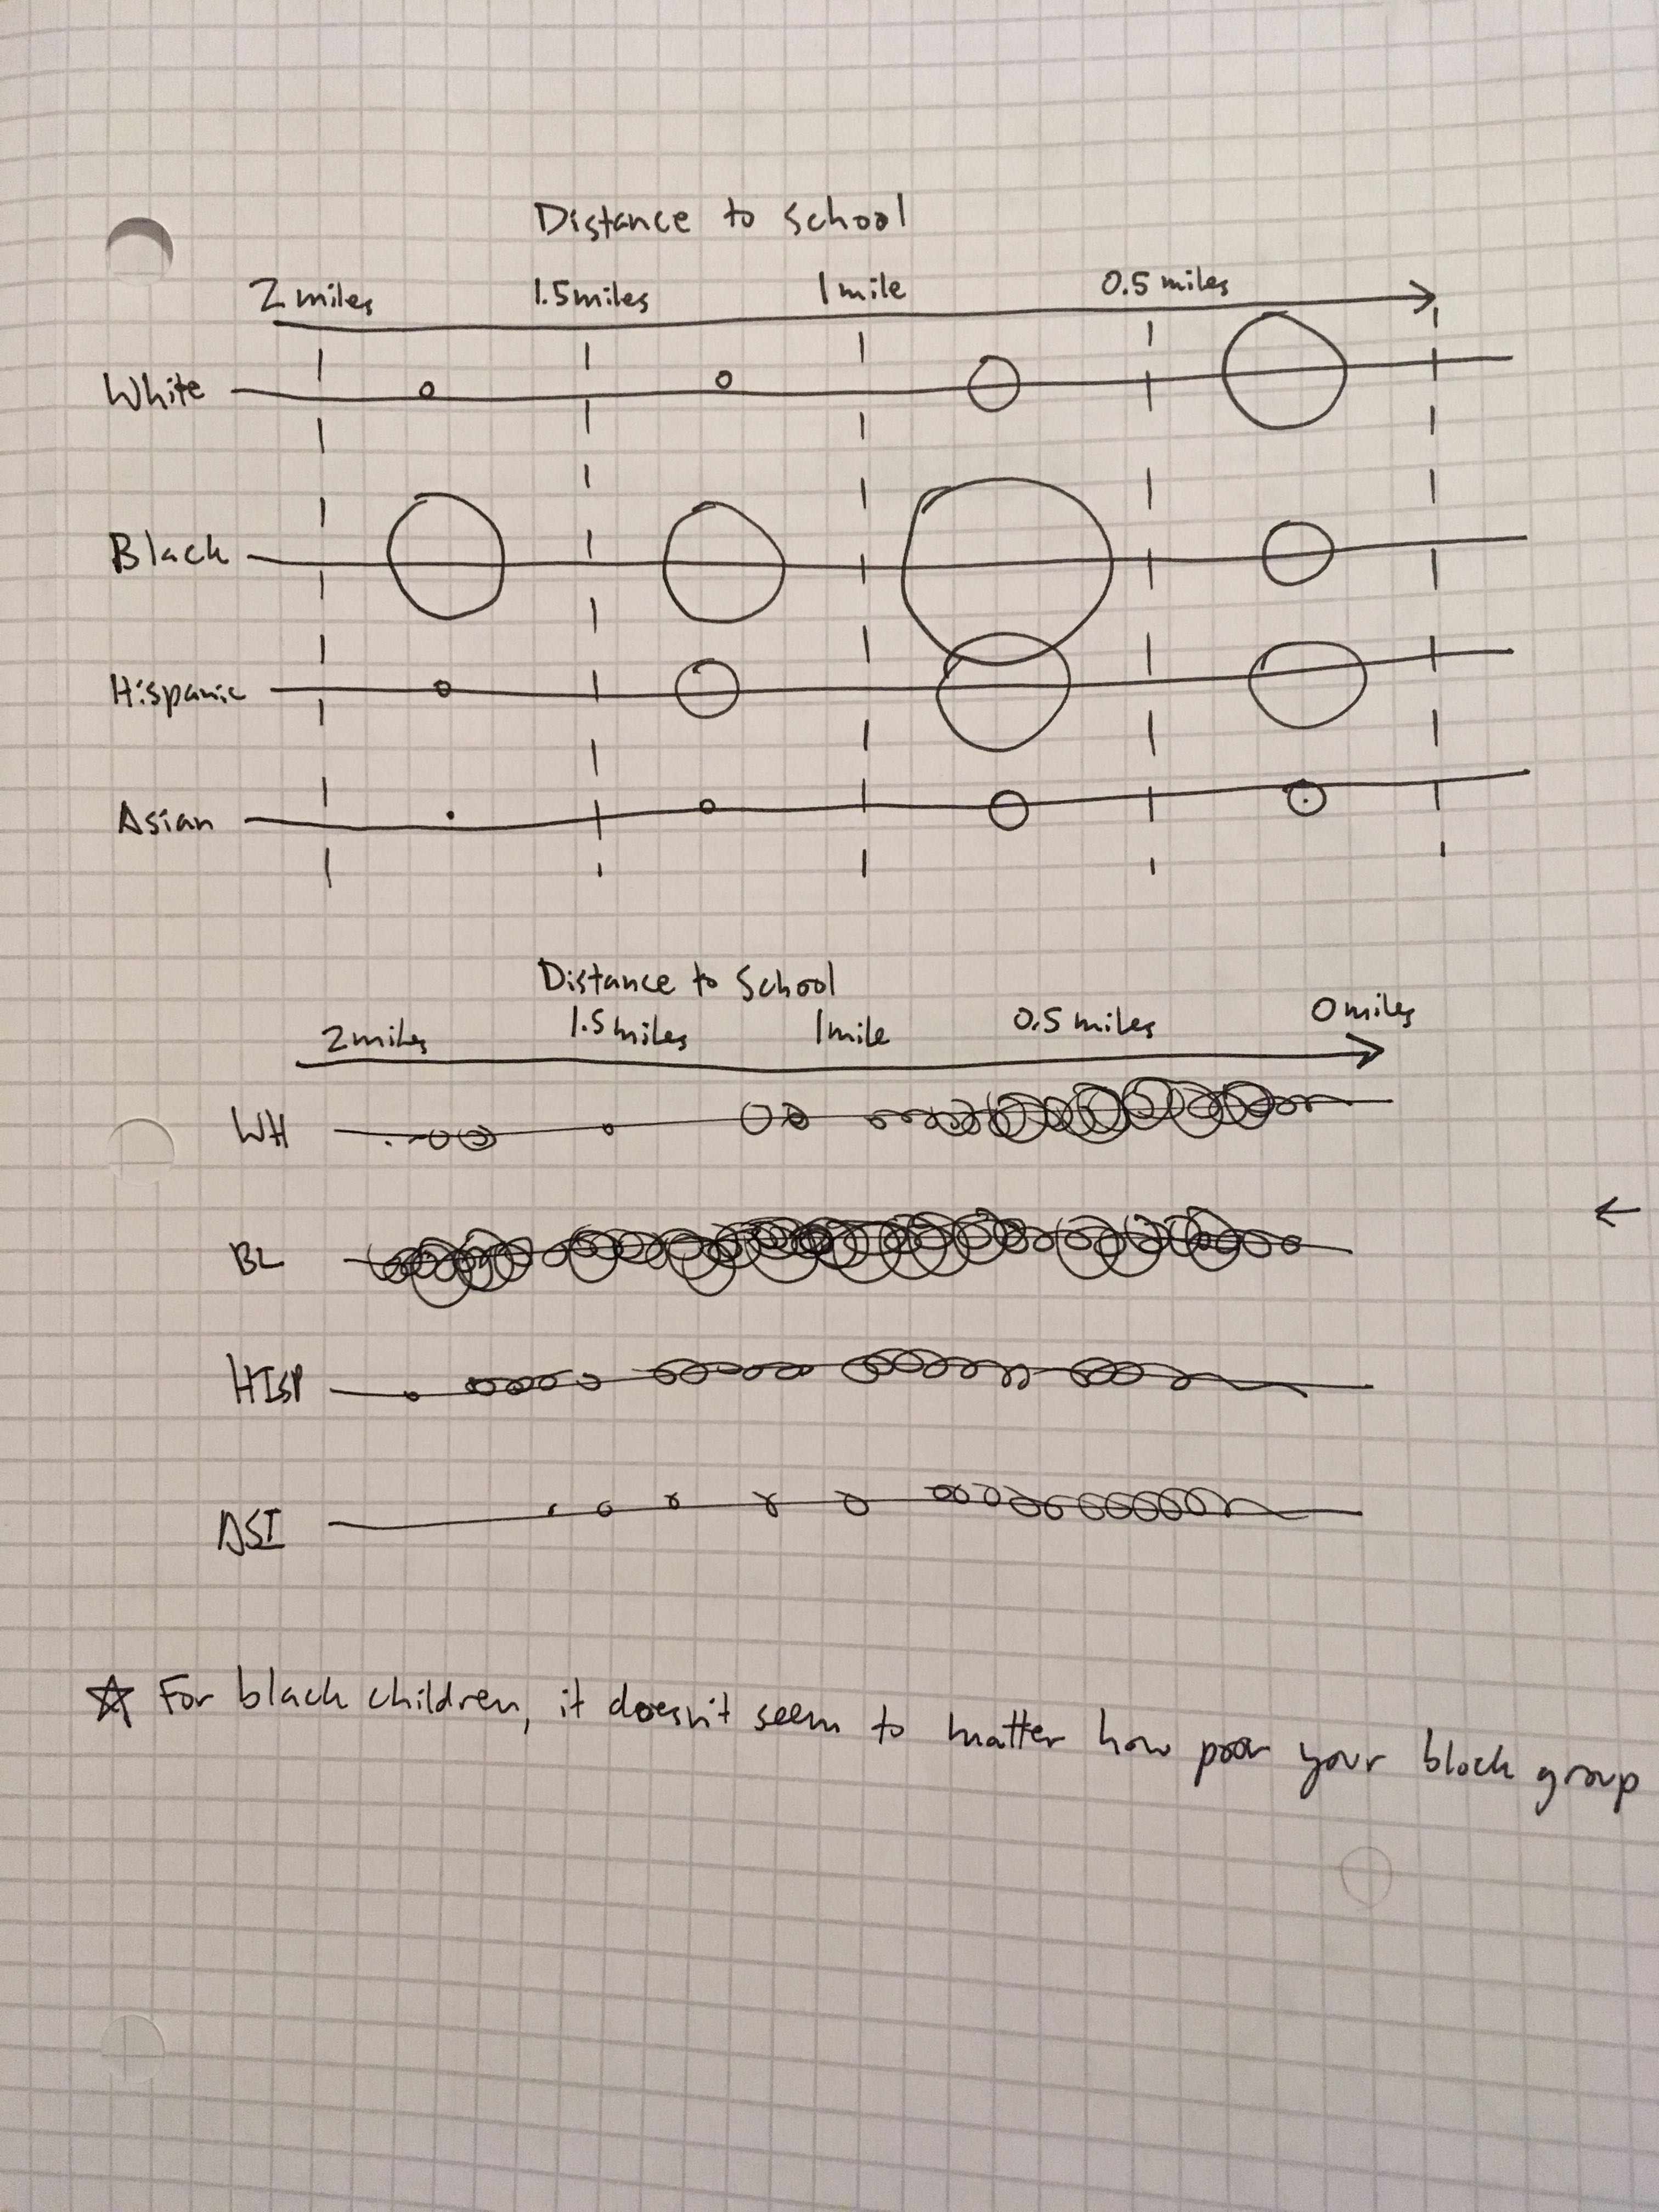 Distance to School
2 miles 1.5 miles 1 mile 0.5 miles
White
Black
Hispanic
Asian
Distance to School
2 miles 1.5 miles 1 mile 0.5 miles 0 miles
WH
BL
HISP
ASI
For black children, it doesn't seem to matter how poor your block group